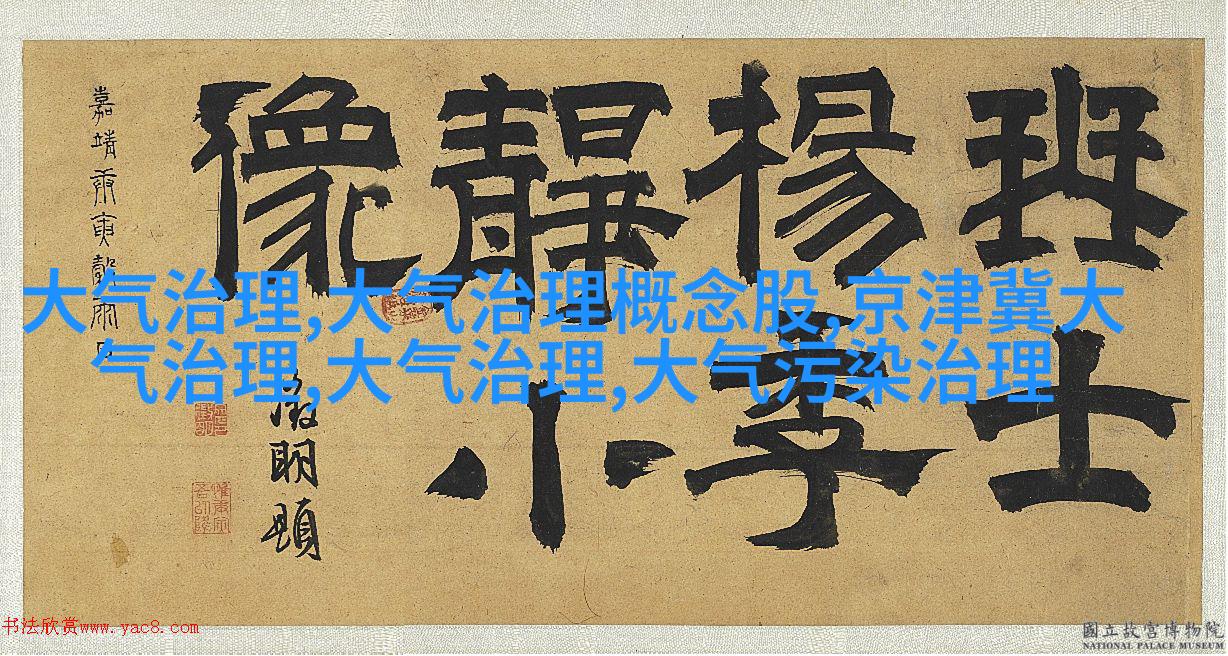 班士
楊季
靜小
像
徵明題
嘉靖庚寅穀雨日
大气治理,大气治理概念股,京津冀大
气治理,大气治理,大气污染治理
书法欣赏www.yac8.com
國立故宮博物院
NATIONAL PALACE MUSEUM